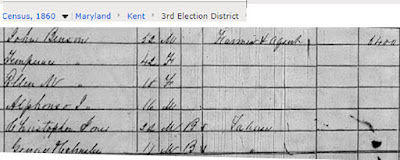 Census, 1860 Maryland Kent 3rd Election District
John Benson 52 M Farmer & Agent
Temperance " 42 F
Ellen W " 18 F
Alphonso J " 16 M
Christopher Jones 22 M B Laborer
18 M B "